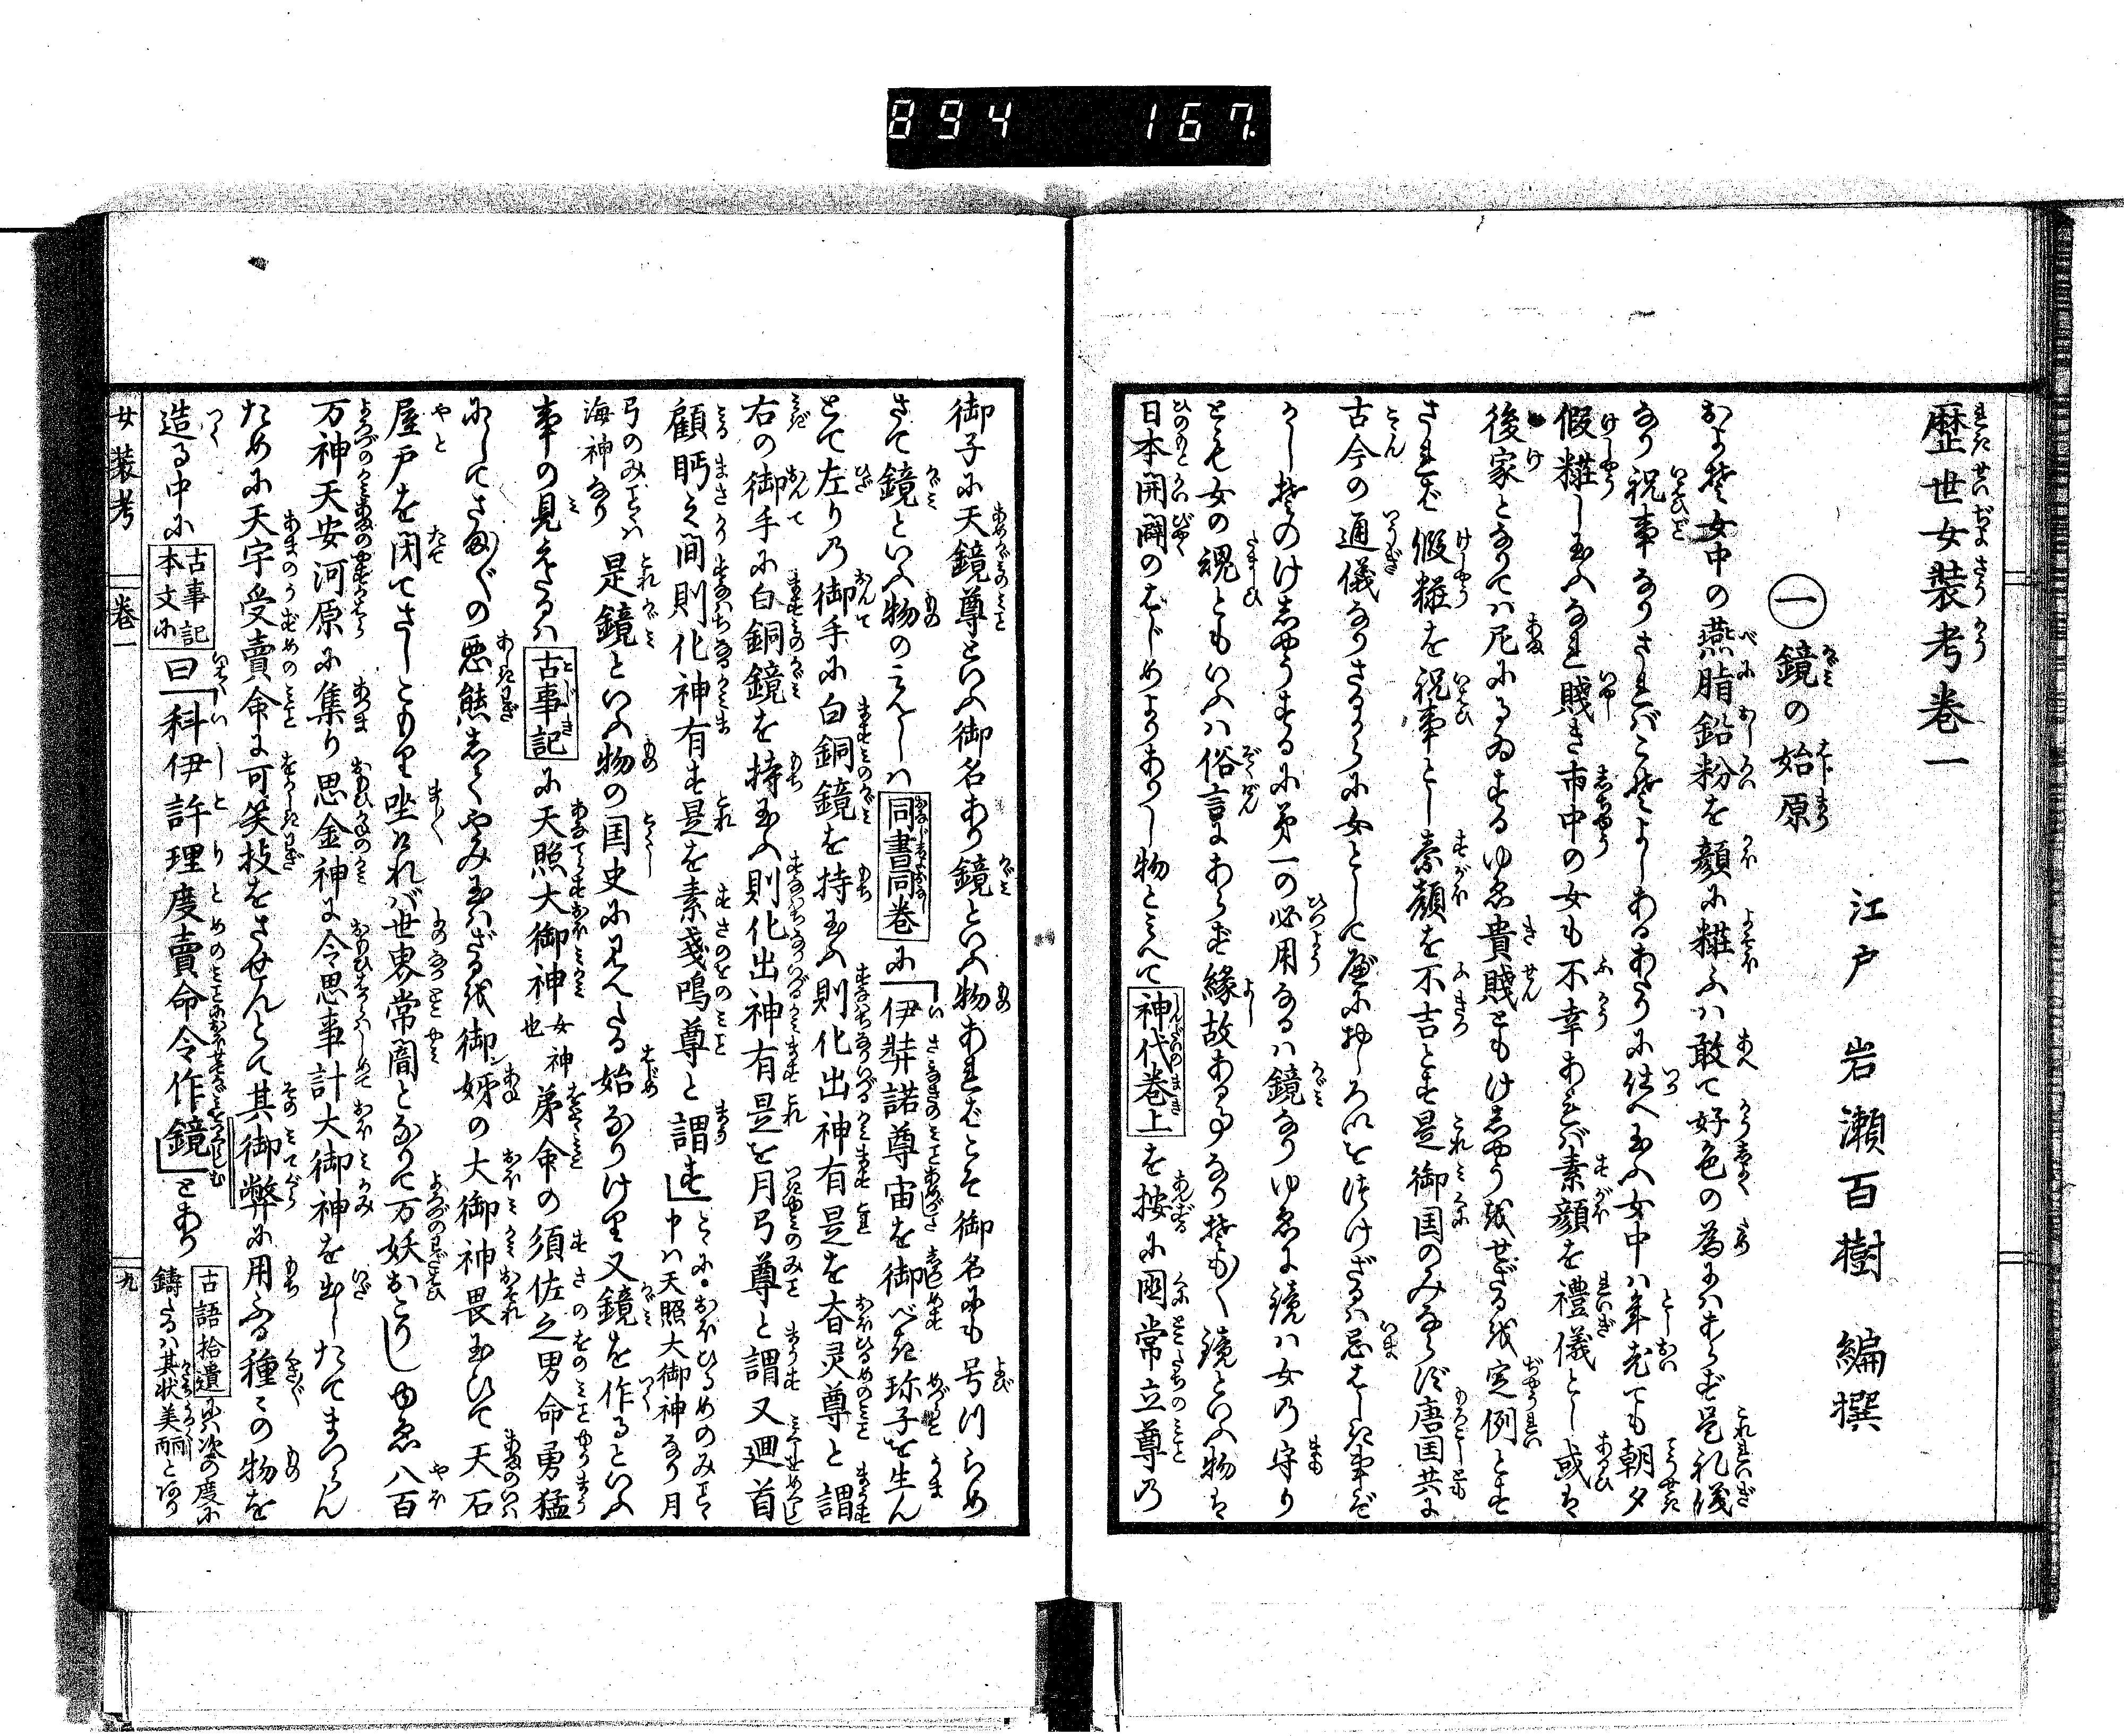 894 167
歴世女装考巻一
江戸 岩瀬百樹 編撰
㊀鏡の始原
およそ女中の燕脂鉛粉を顔に粧ふハ敢て好色の為にハあらず是礼儀
なり祝事なりされバこそよしあるあたりに仕へ玉ふ女中ハ年老ても朝夕
假粧し玉ふなれ賤き市中の女も不幸あれバ素顔を禮儀とし或は
後家となりてハ尼にるゐするゆゑ貴賤ともけしやうせざるを定例とす
されば假粧を祝事とし素顔を不吉とす是御国のみならず唐国共に
古今の通儀なりさるからに女として顔におしろいをつけざるハ忌はしき事ぞ
かしそのけしやうするに第一の必用なるハ鏡なりゆゑに鏡ハ女の守り
とも女の魂ともいふハ俗言にあらず縁故ある事なりそも〱鏡といふ物は
日本開闢のはじめよりありし物とみへて神代巻上を按に國常立尊の
御子に天鏡尊といふ御名あり鏡といふ物あればこそ御名にも号けらめ
さて鏡といふ物のみえしハ同書同巻に「伊弉諾尊宙を御べき珎子を生ん
とて左りの御手に白銅鏡を持玉ふ則化出神有是を大日孁尊と謂
右の御手に白銅鏡を持玉ふ則化出神有是を月弓尊と謂又廻首
顧眄之間則化神有す是を素戔嗚尊と謂す」とに・おほひるめのみことハ
中ハ天照大御神なり月
弓のみことハ
海神なり 是鏡といふ物の国史に見えたる始なりけり又鏡を作るといふ
事の見えたるハ古事記に天照大御神女神也弟命の須佐之男命勇猛
にしてさま〲の悪態しくやみ玉ハざるを御姉の大御神畏玉ひて天石
屋戸を閉てさしこもり坐けれバ世界常闇となりて万妖おこりしゆゑ八百
万神天安河原に集り思金神に令思事計大御神を出したてまつらん
ために天宇受賣命に可笑技をさせんとて其御幣に用ふる種〻の物を
造る中に古事記本文に曰「科伊許理度賣命令作鏡」とあり
古語拾遺にハ次の度に
鋳たるハ其状美麗とあり
女装考 巻一 九